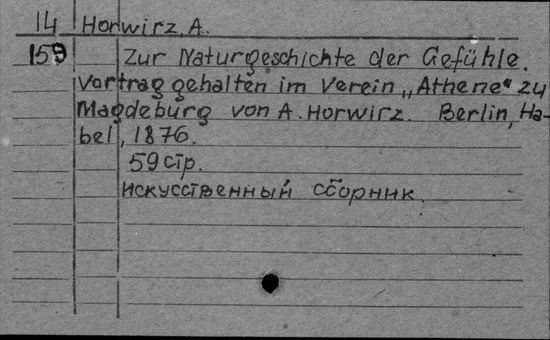 14 Horwirz, A.
159 Zur Naturgeschichte der Gefühle.
Vortrag gehalten im Verein „Athene“ zu
Magdeburg von A. Horwirz. Berlin, Ha-
bel, 1876.
59 стр.
искусственный сборник.